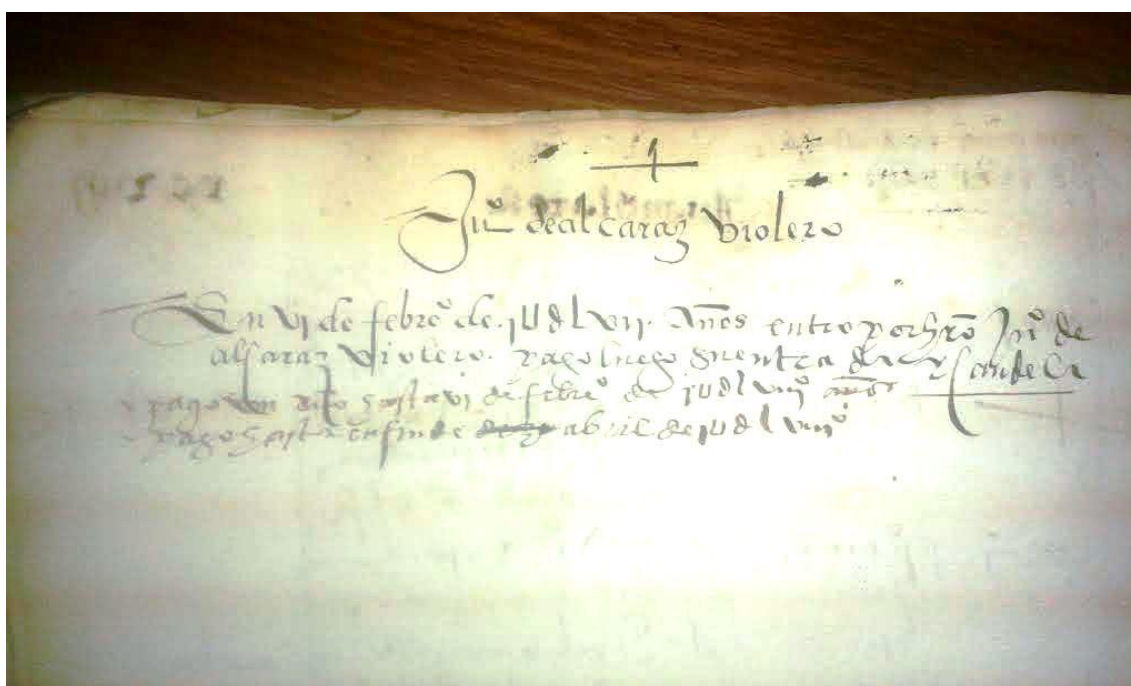 Juº de alcaraz violero
En vj de febrº de jUdLvij años entro por hrº Juº de
alcaraz violero. pago luego su entrada y candela
y pago un año hasta vj de febrº de jUdLviijº años
y pago hasta en fin de abril de jUdLviijº